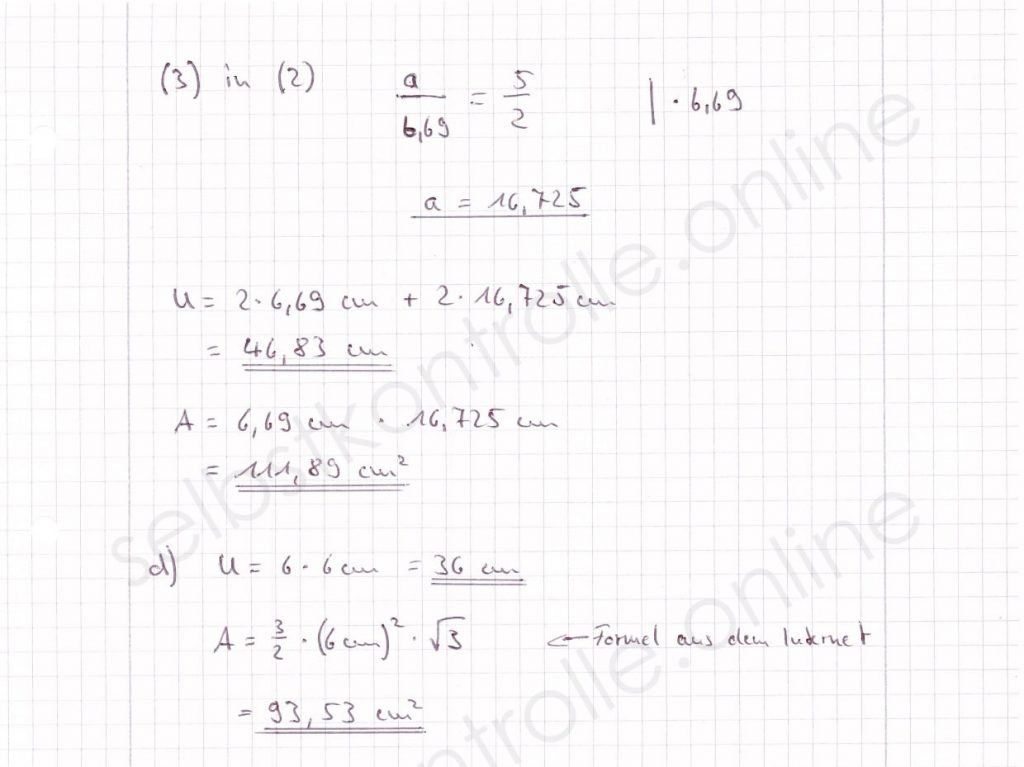 (3) in (2) a/6,69 = 5/2 | · 6,69
a = 16,725
U = 2 · 6,69 cm + 2 · 16,725 cm
= 46,83 cm
A = 6,69 cm · 16,725 cm
= 111,89 cm²
d) U = 6 · 6 cm = 36 cm
A = 3/2 · (6 cm)² · √3 ← Formel aus dem Internet
= 93,53 cm²
selbstkontrolle.online
selbstkontrolle.online